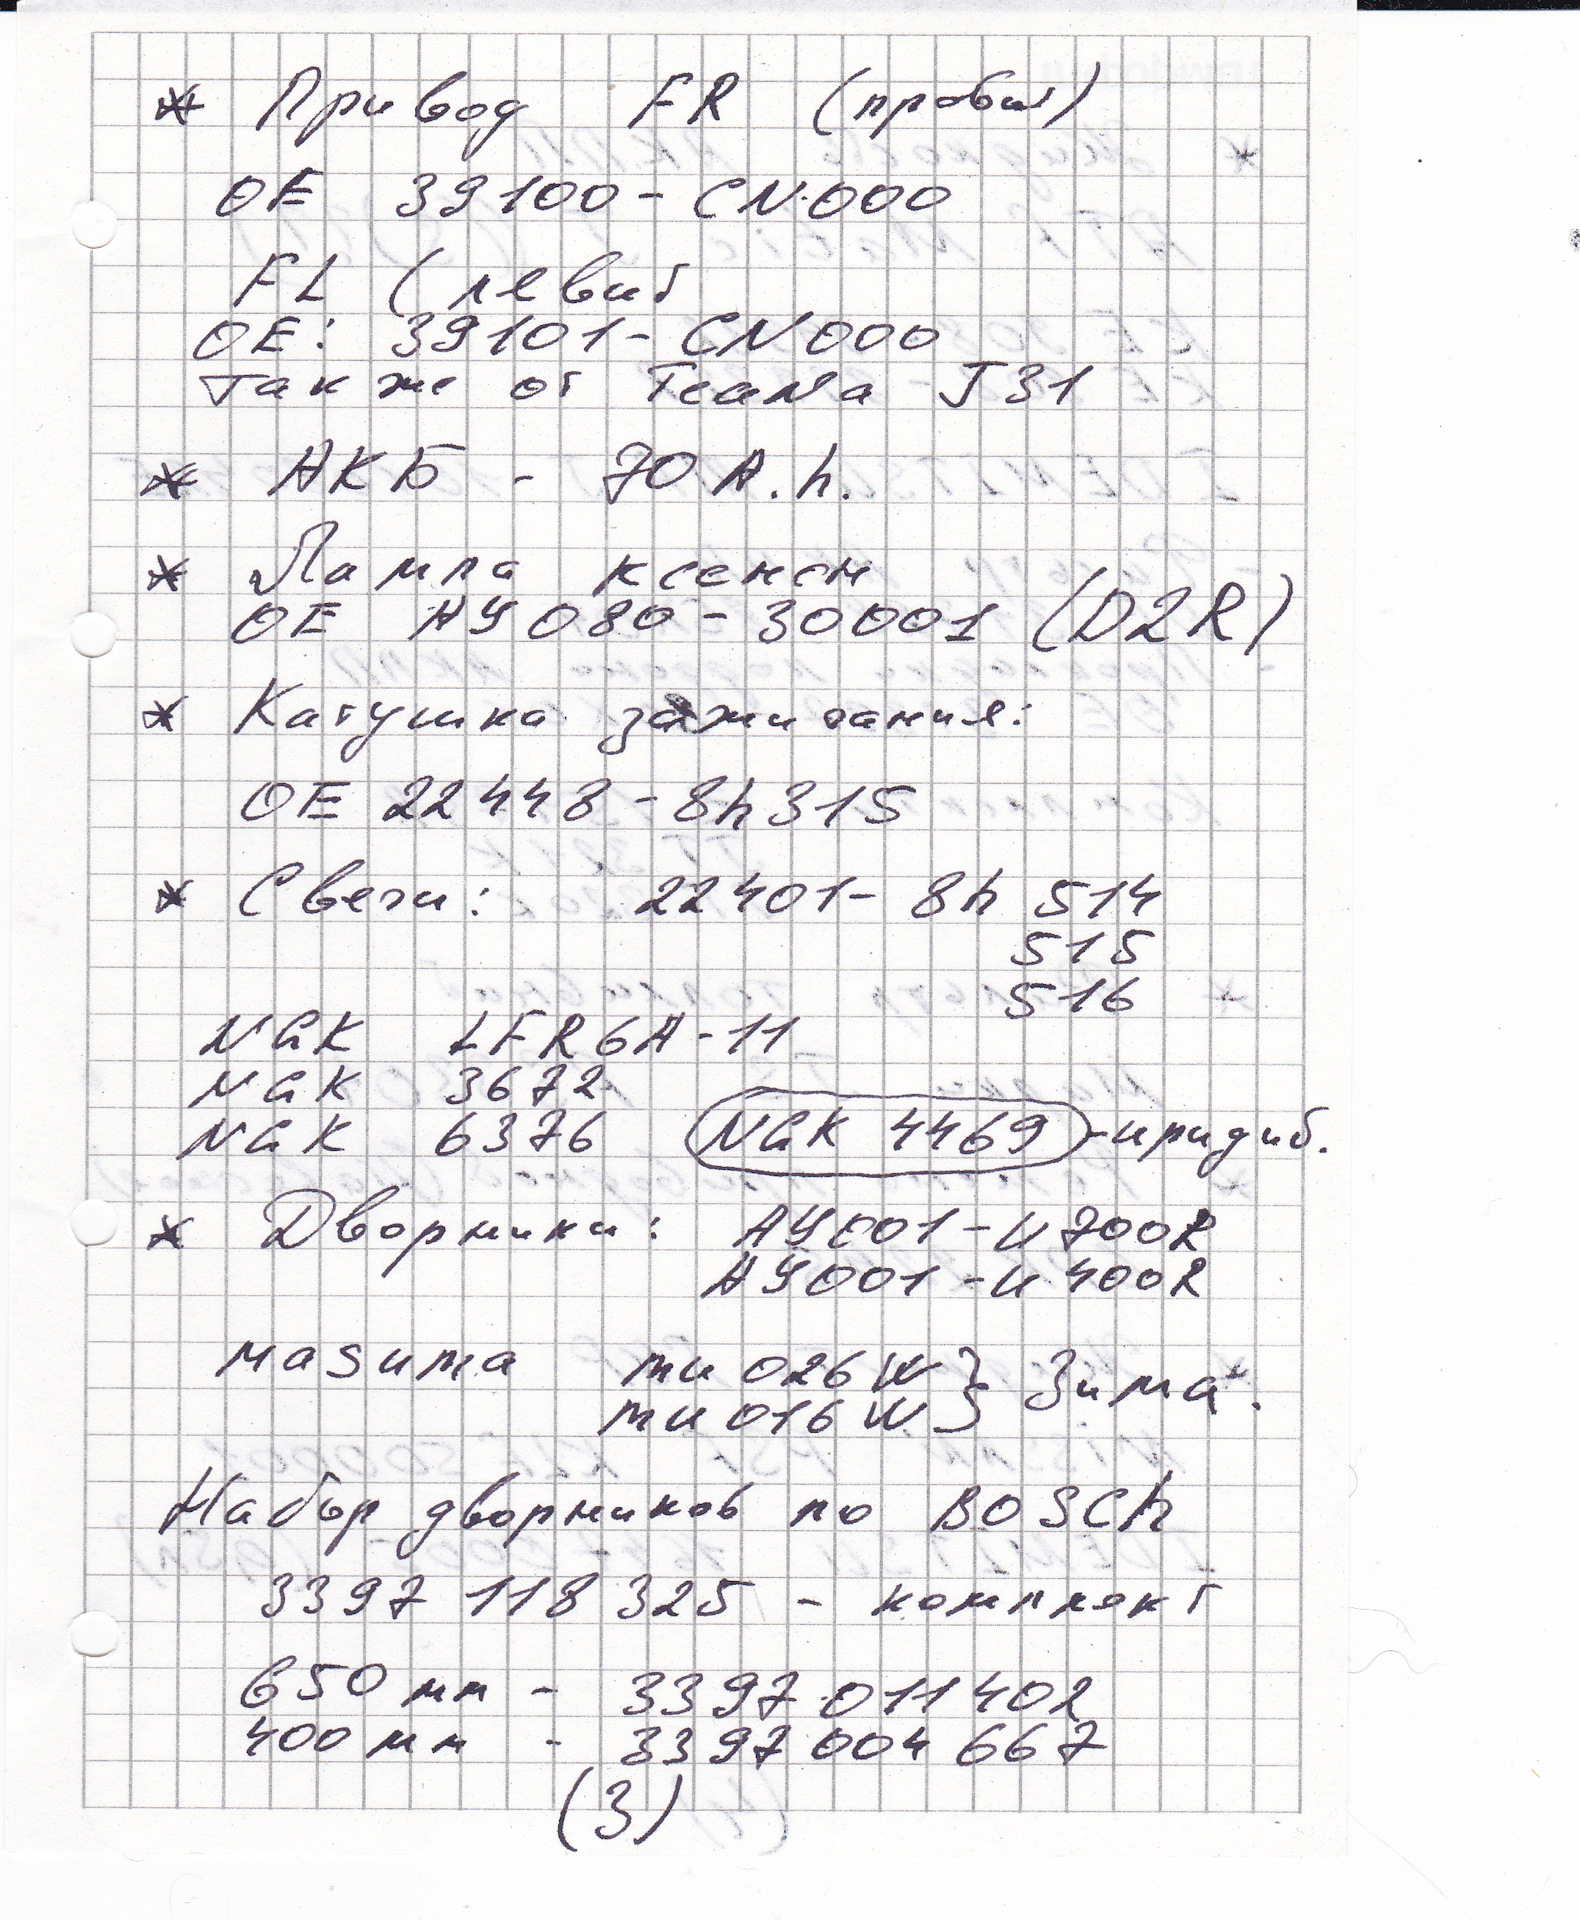 * Привод FR (правый)
OE 39100-CN000
FL (левый
OE: 39101-CN000
также от Teana J31
* АКБ - 70 A.h.
* Лампа ксенон
OE AY080-30001 (D2R)
* Катушка зажигания:
OE 22448-8h315
* Свечи: 22401-8h 514
515
516
NGK LFR6A-11
NGK 3672
NGK 6376 NGK 4469 - иридий.
* Дворники: AY001-U700R
AY001-U400R
Masuma mu 026W } Зима.
mu 016W
Набор дворников по BOSCh
3397 118 325 - комплект
650 мм - 3397 011 402
400 мм - 3397 004 667
(3)